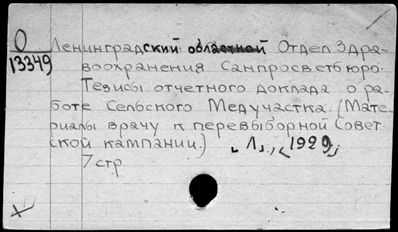 О
13349
Ленинградский областной Отдел Здра-
воохранения Санпросветбюро.
Тезисы отчетного доклада о ра-
боте Сельского Медучастка. (Мате-
риалы врачу к перевыборной Совет-
ской кампании.) Л., 1929,
7 стр